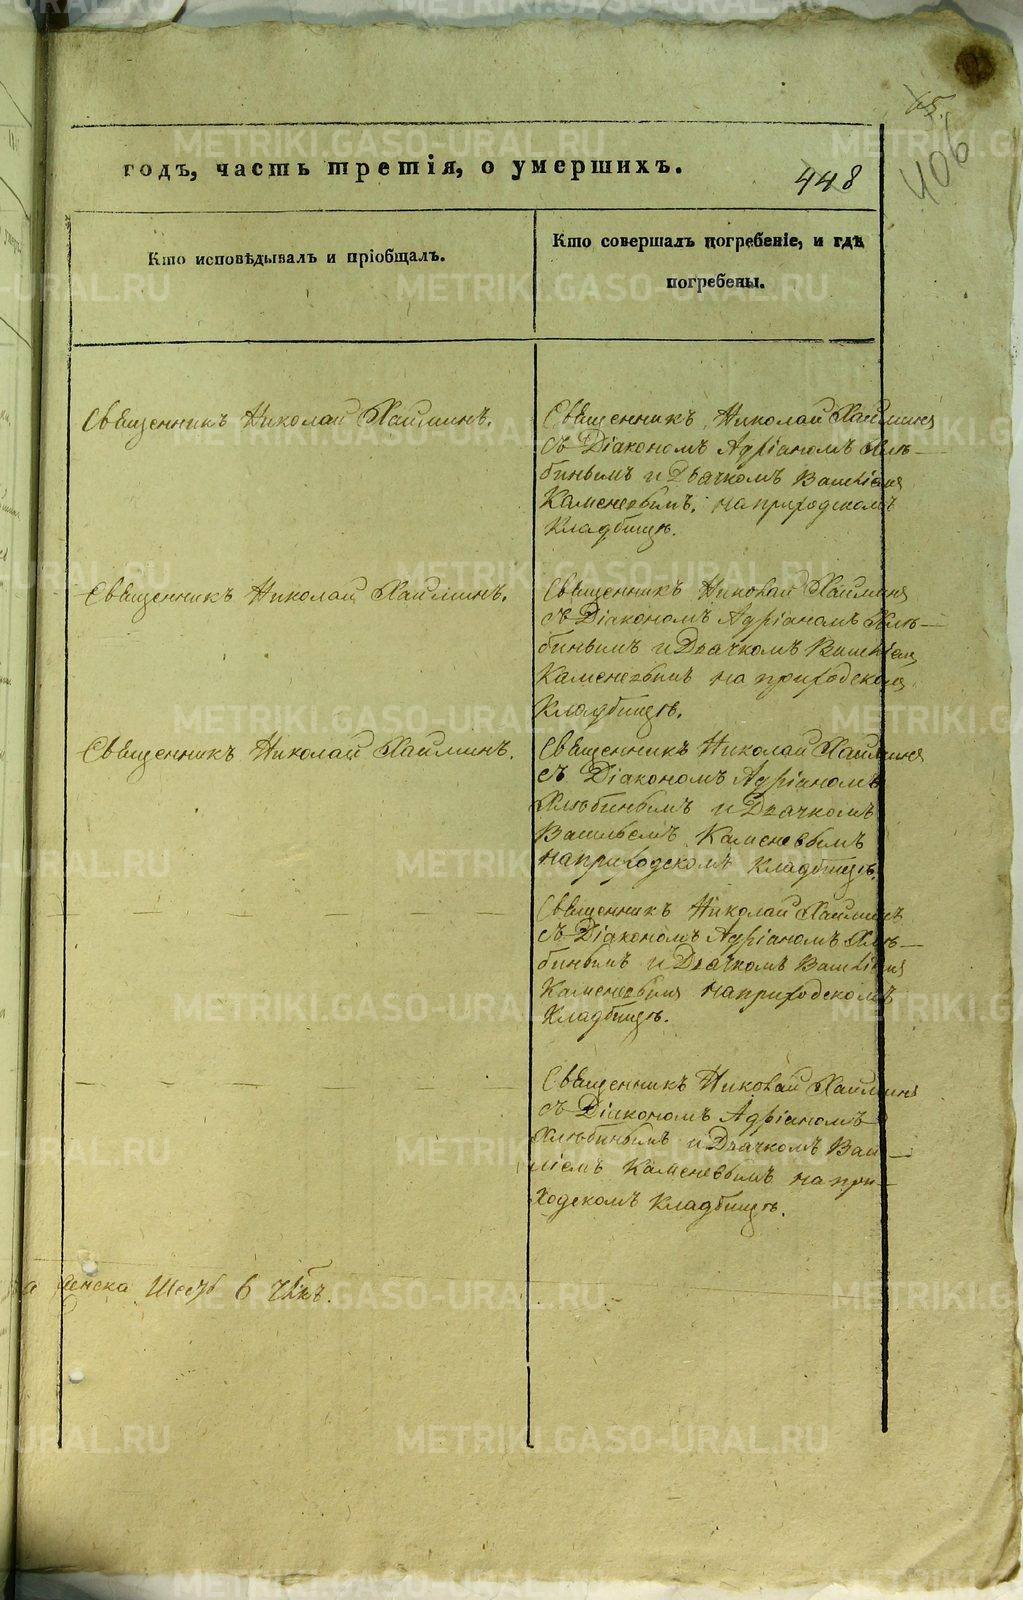 65.
406
годъ, часть третія, о умершихъ.
448
Кто исповѣдывалъ и пріобщалъ.
Кто совершалъ погребеніе, и гдѣ
погребены.
Священникъ Николай Хайминъ.
Священникъ Николай Хайминъ
съ Діакономъ Адріаномъ Хлю-
бинымъ и Дьячкомъ Василіемъ
Каменевымъ, на приходскомъ
Кладбищѣ.
Священникъ Николай Хайминъ.
Священникъ Николай Хайминъ
съ Діакономъ Адріаномъ Хлю-
бинымъ и Дьячкомъ Василіем
Каменевымъ на приходскомъ
Кладбищѣ.
Священникъ Николай Хайминъ.
Священникъ Николай Хайминъ
съ Діакономъ Адріаномъ
Хлюбинымъ и Дьячкомъ
Васильемъ Каменевымъ
на приходскомъ Кладбищѣ.
Священникъ Николай Хайминъ
съ Діакономъ Адріаномъ Хлю-
бинымъ и Дьячкомъ Василіемъ
Каменевымъ на приходскомъ
Кладбищѣ.
Священникъ Николай Хайминъ
съ Діакономъ Адріаномъ
Хлюбинымъ и Дьячкомъ Васи-
ліемъ Каменевымъ на при-
ходскомъ Кладбищѣ.
женска Шесть 6 чкъ.
METRIKI.GASO-URAL.RU